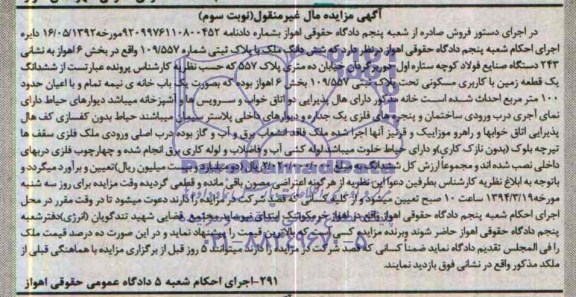 آگهی مزایده مال غیرمنقول(نوبت سوم)
در اجرای دستور فروش صادره از شعبه پنجم دادگاه حقوقی اهواز بشماره دادنامه ۹۲۰۹۹۷۶۱۱۰۸۰۰۴۵۲ مورخه ۱۶/۰۵/۱۳۹۲ دایره
اجرای احکام شعبه پنجم دادگاه حقوقی اهواز در نظر دارد که شش دانگ ملک با پلاک ثبتی شماره ۱۰۹/۵۵۷ واقع در بخش ۶ اهواز به نشانی
۲۴۳ دستگاه صنایع فولاد کوچه ستاره اول خیابان ده متری پلاک ۵۵۷ که حسب نظریه کارشناس پرونده عبارتست از ششدانگ
یک قطعه زمین با کاربری مسکونی تحت پلاک ثبتی ۱۰۹/۵۵۷ بخش ۶ اهواز بوده که بصورت یک باب خانه ی نیمه تمام و با اعیان حدود
۱۰۰ متر مربع احداث شده است خانه مذکور دارای هال پذیرایی دو اتاق خواب و سرویس ها و آشپزخانه میباشد دیوارهای حیاط دارای
نمای آجری درب ورودی ساختمان و پنجره های فلزی یک جداره و دیوارهای داخلی پلاستر سیمان میباشند حیاط بدون کفسازی کف هال
پذیرایی اتاق خوابها و راهرو موزاییک و قرنیز آنها اجرا شده ملک فاقد انشعاب برق و آب و گاز بوده درب اصلی ورودی ملک فلزی سقف ها
تیرچه بلوک (بدون نازک کاری)و دارای حیاط خلوت میباشد لوله کشی آب و فاضلاب و لوله کاری برق انجام شده و چهارچوب فلزی دربهای
داخلی نصب شده اند و مجموعاً ارزش کل ششدانگ به مبلغ ریال(دو میلیارد و میلیون ریال)تعیین و برآورد میگردد و
باتوجه به ابلاغ نظریه کارشناس بطرفین دعوا این نظریه از هر گونه اعتراضی مصون باقی مانده و قطعی گردیده وقت مزایده برای روز سه شنبه
مورخه ۱۳۹۴/۳/۱۹ ساعت ۱۰ صبح تعیین میشود و از کلیه کسانی که قصد شرکت در مزایده را دارند دعوت میشود تا در وقت مقرر در محل
اجرای احکام شعبه پنجم دادگاه حقوقی اهواز واقع در اهواز مجتمع قضایی شهید تندگویان (انرژی)دفتر شعبه
پنجم دادگاه حقوقی اهواز حاضر شوند وبرنده مزایده کسی است که بالاترین قیمت را پیشنهاد نماید و در این صورت ده درصد قیمت ملک
را فی المجلس تقدیم دادگاه نماید ضمناً کسانی که قصد شرکت در مزایده را دارند میتوانند ۵ روز قبل از برگزاری مزایده با هماهنگی قبلی از
ملکه مذکور واقع در نشانی فوق بازدید نمایند.
۲۹۱-اجرای احکام شعبه ۵ دادگاه عمومی حقوقی اهواز
ParsNamadData
۰۲۱-۸۸۳۴۹۶۷۰-۵